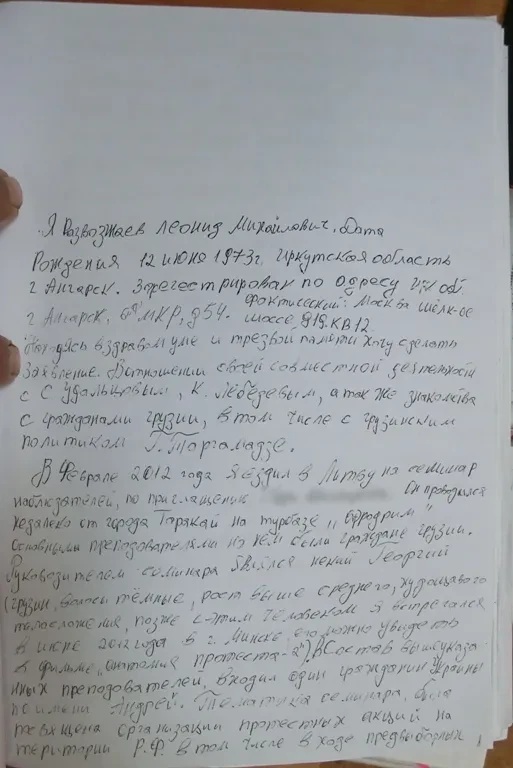 Я Развозжаев Леонид Михайлович. Дата
Рождения 12 июня 1973г. Иркутская область
г Ангарск. Зарегестрирован по адресу Ирк обл.
г. Ангарск, МКР, д 54. Фактисеский: Москва
шоссе, д19. КВ 12.
Находясь в здравом уме и трезвой памяти хочу сделать
Заявление. В отношении своей совместной деятельности
с С Удальцовым, К. Лебедевым, а так же знакомства
с гражданами грузии, в том числе с грузинским
политиком Г. Таргамадзе.
В Феврале 2012 года я ездил в Литву на семинар
наблюдателей, по приглашению Он проводился
недалеко от города Таракай на турбазе
основными преподователями на нём были граждане грузии.
Руководителем семинара являлся некий Георгий
(грузин, волосы тёмные, рост выше среднего, худощавого
телосложения, позже с этим человеком я встречался
в июне 2012 года в г. Минске, его можно увидеть
в фильме "анатомия протеста-2"). В Состав вышеуказа-
нных преподователей, входил один гражданин Украины
по имени Андрей. Тематика семинара, была
посвящена организации протестных акций на
територии Р.Ф. в том числе в ходе предвыборных